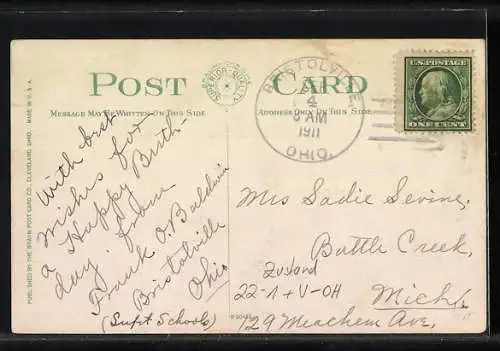 POST CARD
SUPERIOR QUALITY
MESSAGE MAY BE WRITTEN ON THIS SIDE
ADDRESS ONLY ON THIS SIDE
MADE IN U.S.A.
PUBLISHED BY THE BRAUN POST CARD CO., CLEVELAND, OHIO.
BRISTOLVILLE
4
AM
1911
OHIO.
U.S. POSTAGE
ONE CENT
With best
wishes for
a Happy Birth-
day from
Frank O. Baldwin
Bristolville
Ohio
(Supt Schools)
Mrs Sadie Levine,
Battle Creek,
Mich.
129 Meachem Ave,
Zustand
22-1+V-OH